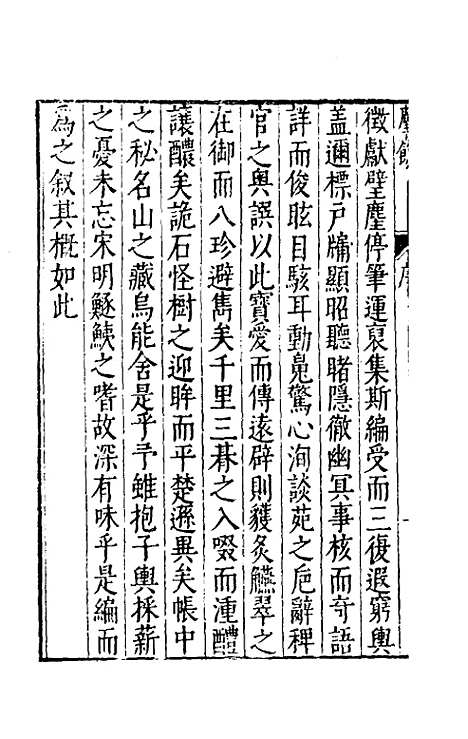 塵餘 序
徵獻璧塵停筆運裒集斯編受而三復遐窮輿
盖邇標戶牗顯昭聽睹隱徹幽冥事核而竒語
詳而俊眩目駭耳動䰟驚心洵談苑之巵辭稗
官之輿譔以此寳愛而傳逺辟則玃炙䲒翠之
在御而八珍避雋矣千里三碁之入啜而湩醴
讓醲矣詭石怪樹之迎眸而平楚遜異矣帳中
之秘名山之藏烏能舍是乎予雖抱子輿採薪
之憂未忘宋明鱁鮧之嗜故深有味乎是編而
為之叙其概如此